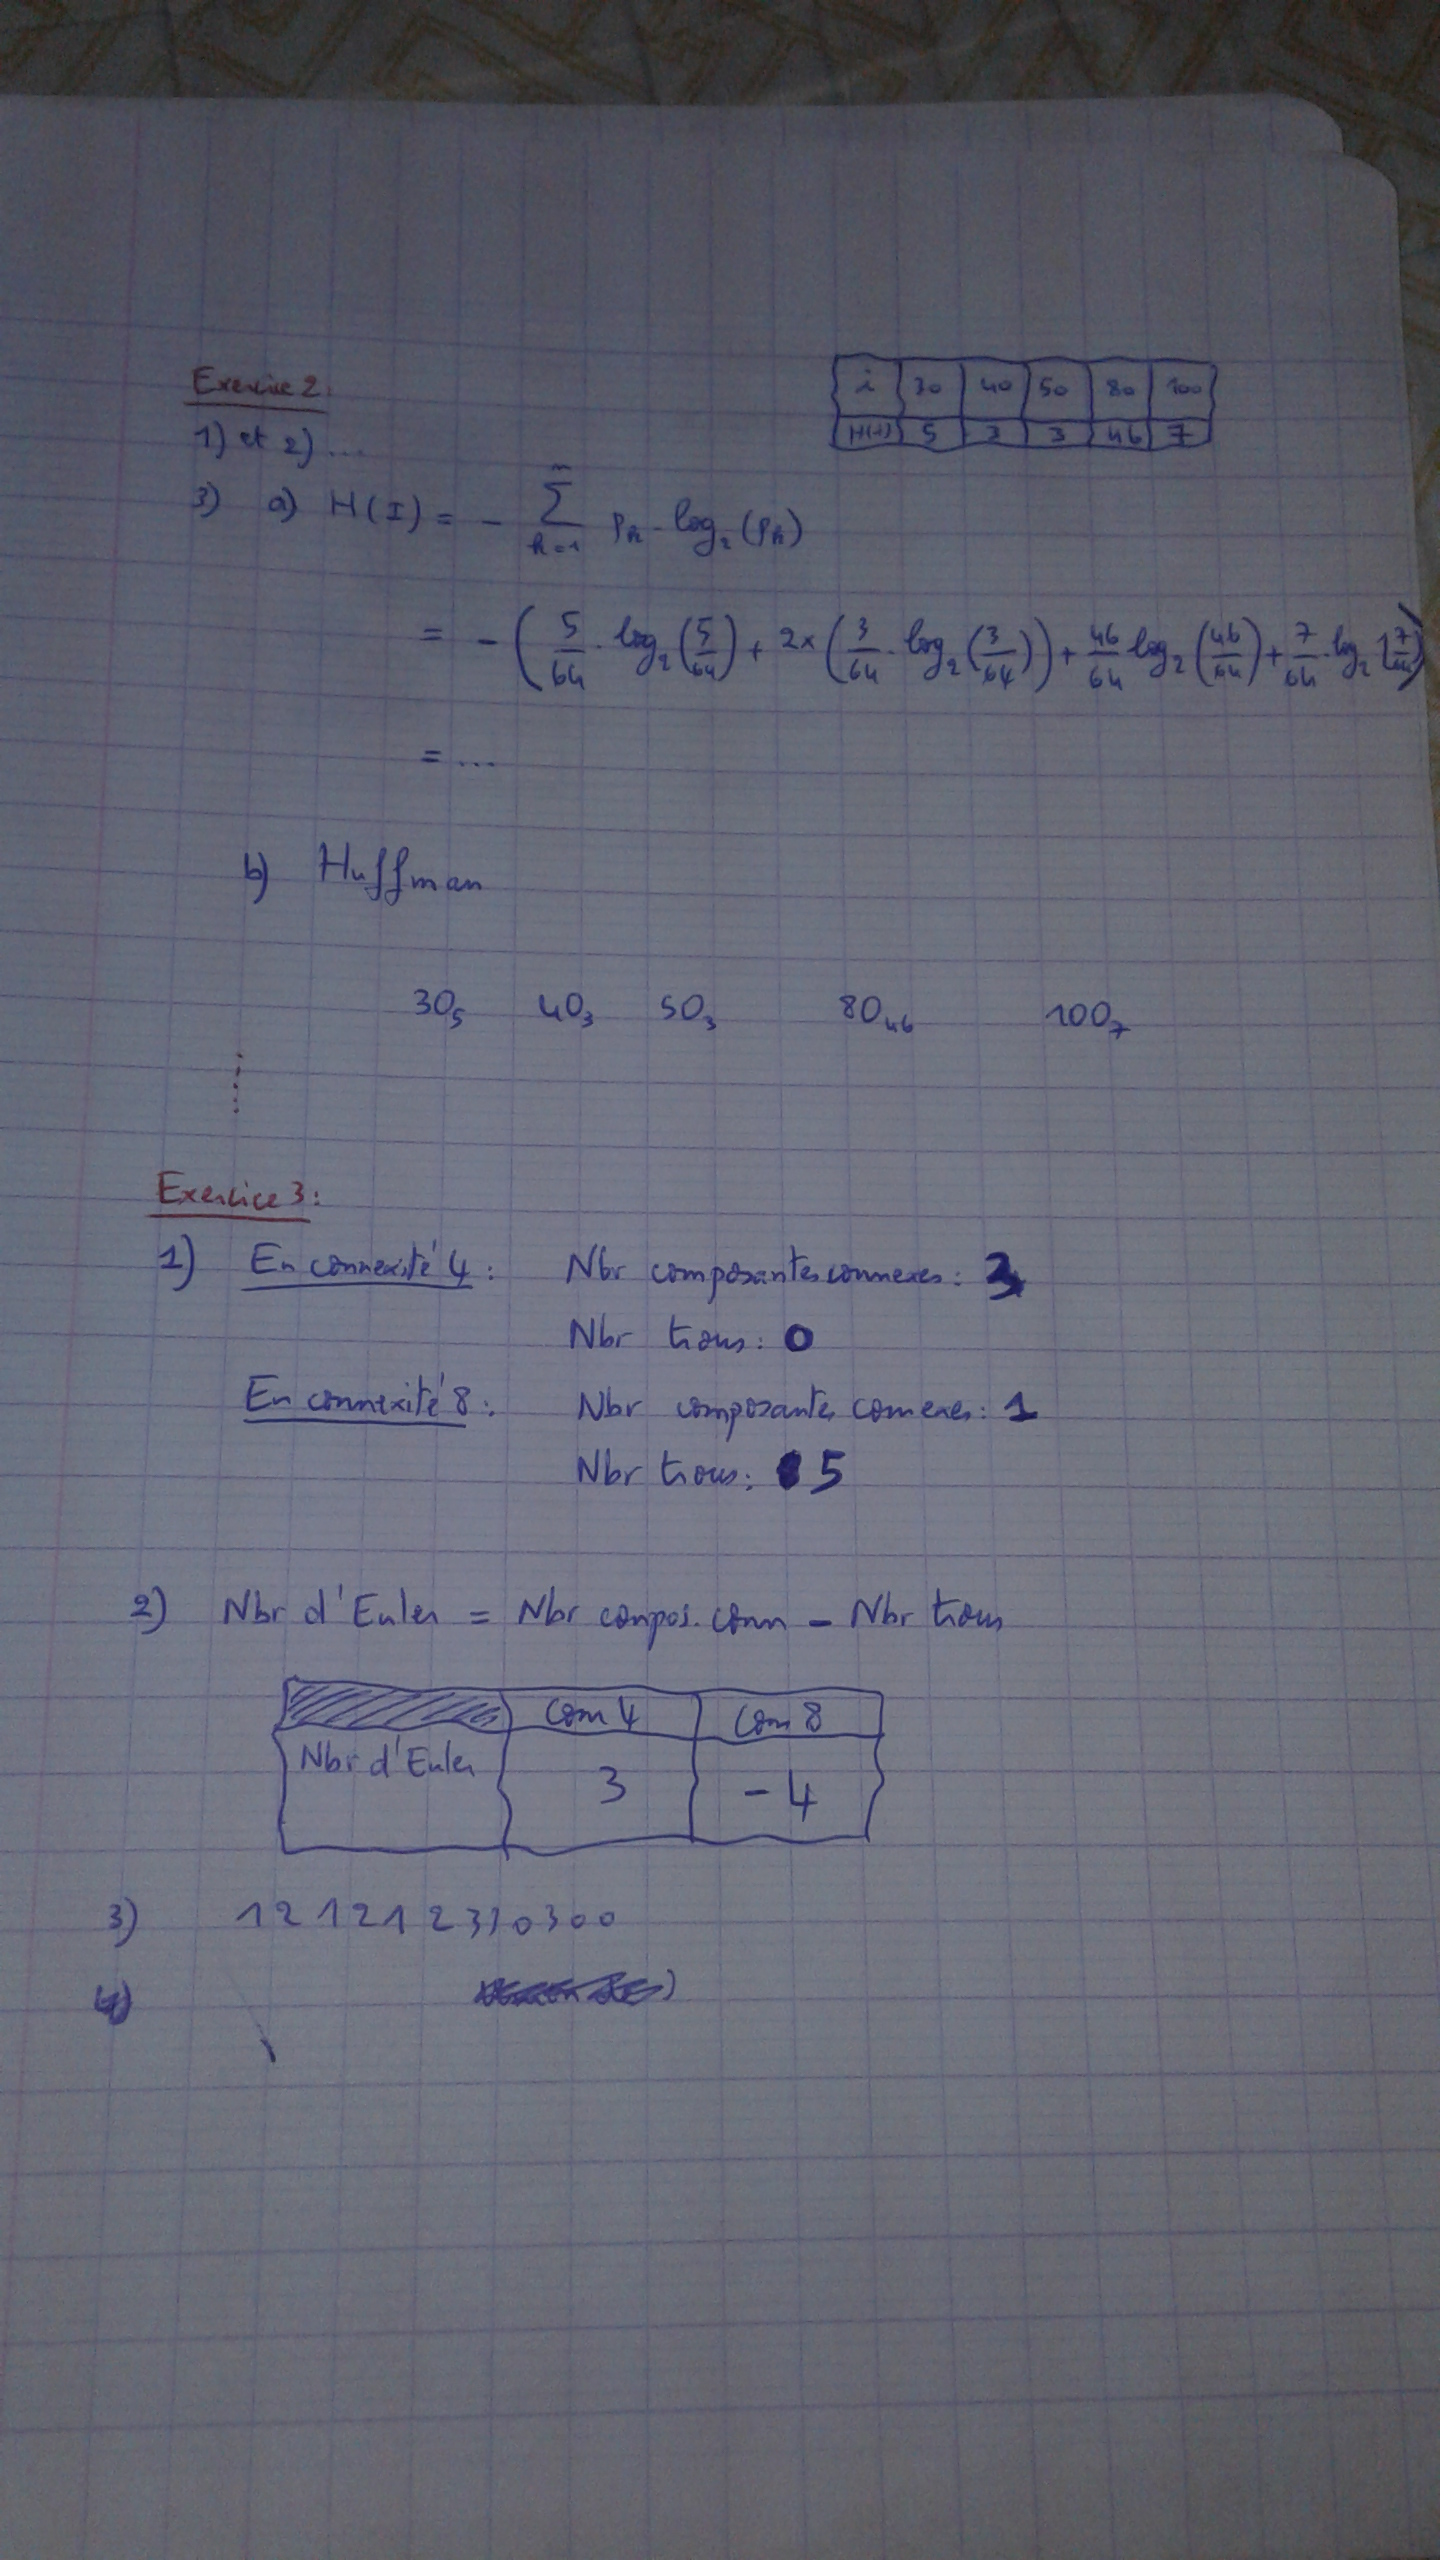 Exercice 2:
i 30 40 50 80 100
H(i) 5 3 3 46 7
1) et 2) ...
3) a) H(I) = - Σ_{k=1}^{n} p_k . log₂(p_k)
= - ( 5/64 . log₂(5/64) + 2 × ( 3/64 . log₂(3/64) ) + 46/64 log₂(46/64) + 7/64 . log₂(7/64) )
= ...
b) Huffman
30₅ 40₃ 50₃ 80₄₆ 100₇
Exercice 3:
1) En connexité 4 : Nbr composantes connexes : 3
Nbr trous : 0
En connexité 8 : Nbr composantes connexes : 1
Nbr trous : 5
2) Nbr d'Euler = Nbr compos. conn - Nbr trous
Conn 4 Conn 8
Nbr d'Euler 3 -4
3) 1 2 1 2 1 2 3 3 0 3 0 0
4)